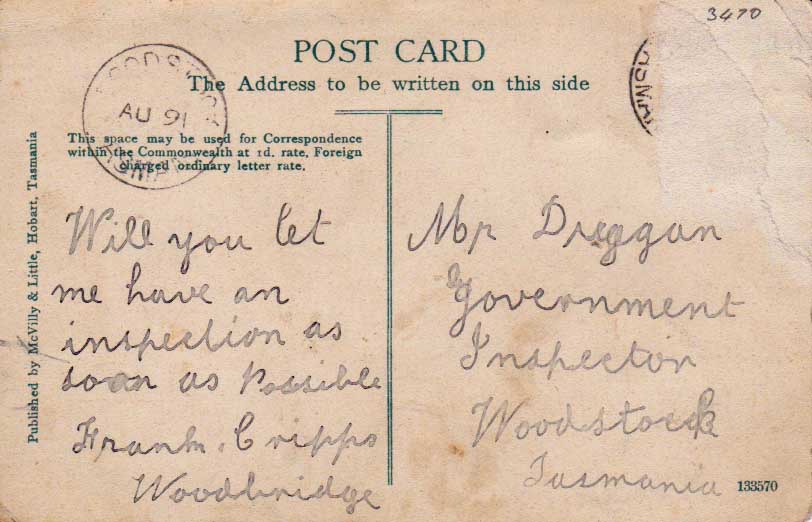 3470
POST CARD
The Address to be written on this side
AU 91
This space may be used for Correspondence
within the Commonwealth at 1d. rate, Foreign
charged ordinary letter rate.
Published by McVilly & Little, Hobart, Tasmania
Will you let
me have an
inspection as
soon as Possible
Frank. Cripps
Woodbridge
Mr Dreggan
Government
Inspector
Woodstock
Tasmania
133570